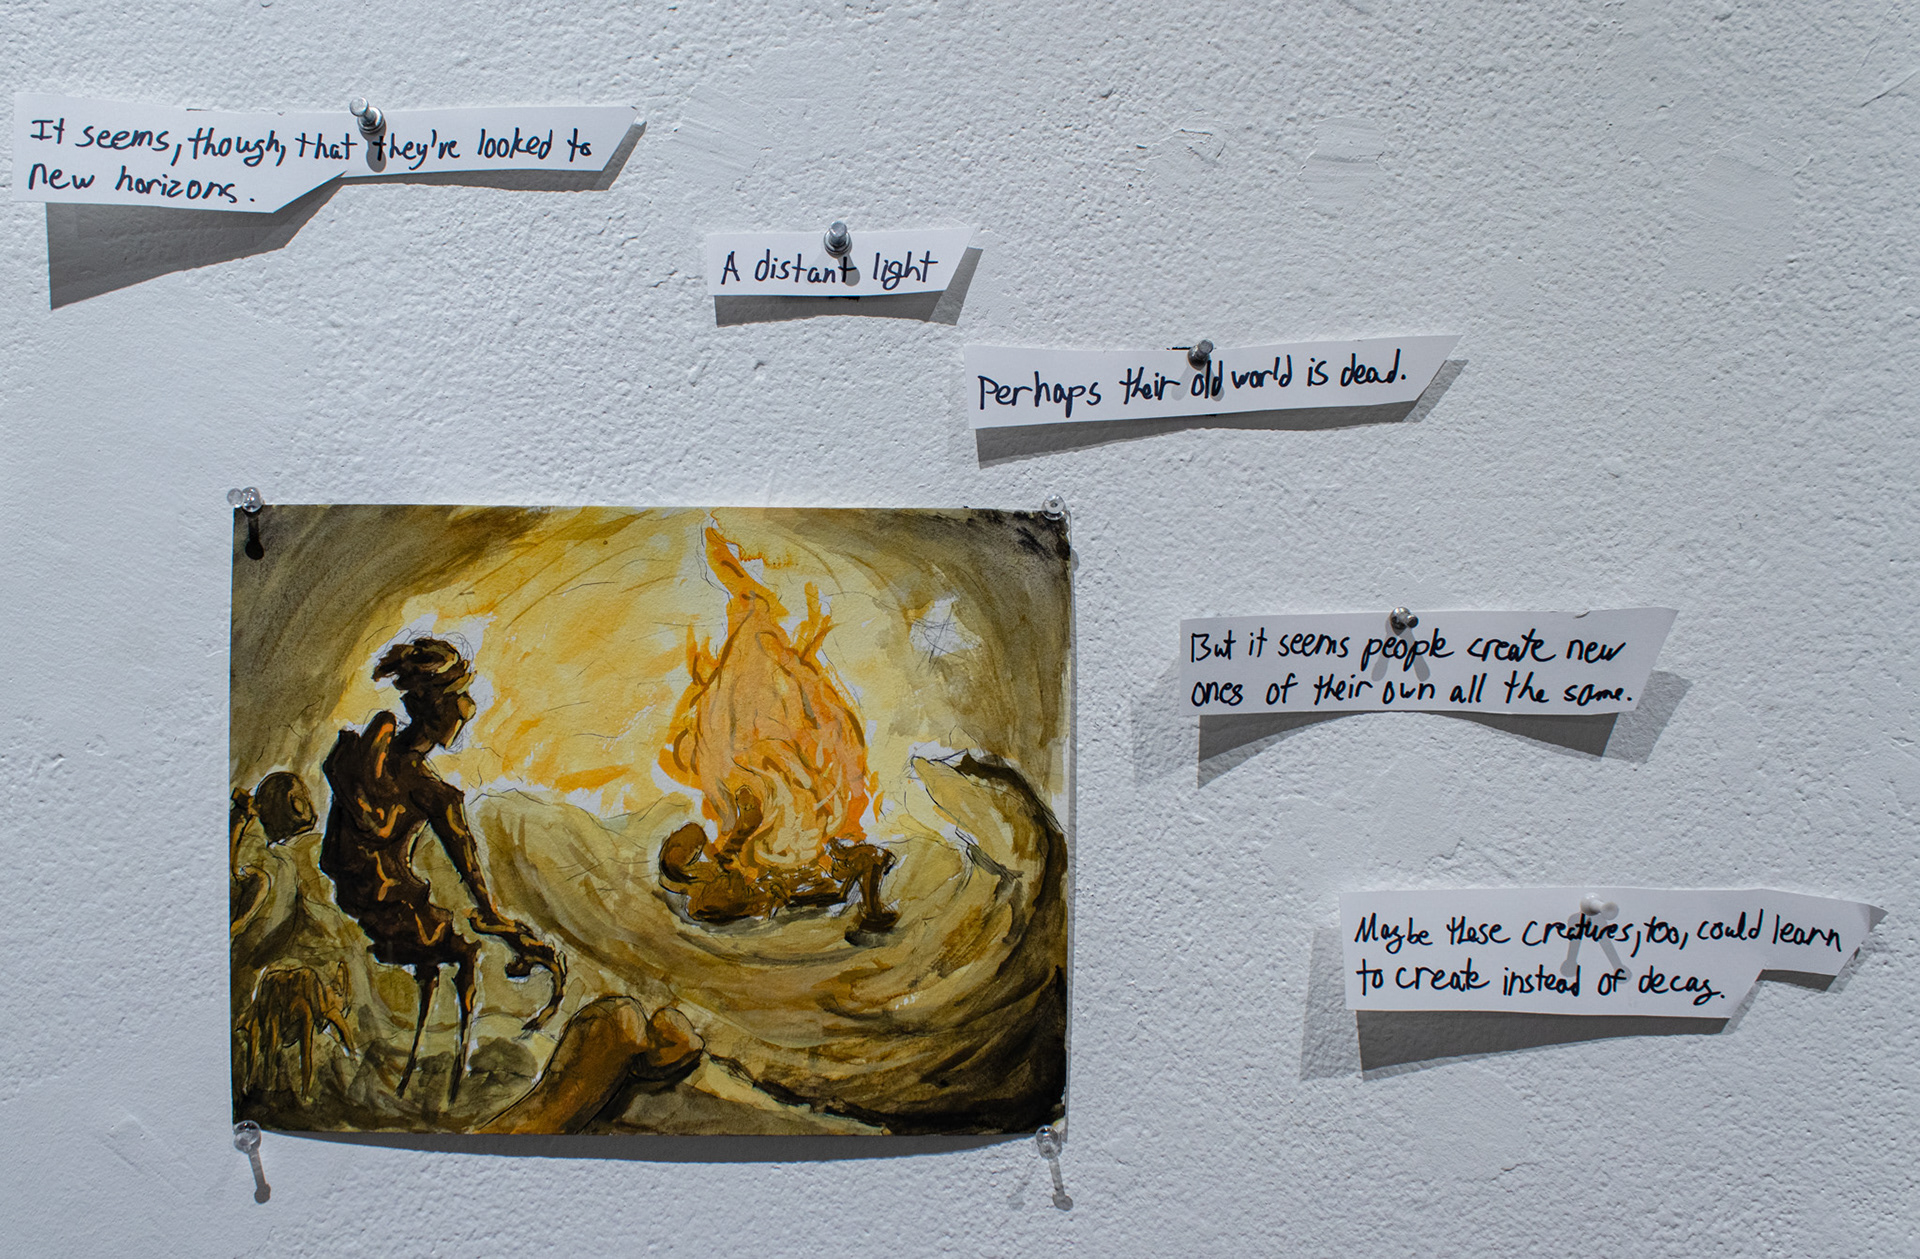 It seems, though, that they've looked to
new horizons.
A distant light
Perhaps their old world is dead.
But it seems people create new
ones of their own all the same.
Maybe these creatures, too, could learn
to create instead of decay.